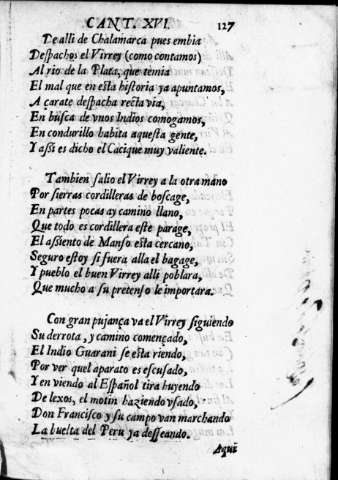 CANT. XVI. 127
De alli de Chalamarca pues embia
Despachos el Virrey (como contamos)
Al rio de la Plata, que temia
El mal que en esta historia ya apuntamos,
A carate despacha recta via,
En busca de vnos Indios comogamos,
En condurillo habita aquesta gente,
Y assi es dicho el Cacique muy valiente.
Tambien salio el Virrey a la otra mano
Por sierras cordilleras de boscage,
En partes pocas ay camino llano,
Que todo es cordillera este parage,
El assiento de Manso esta cercano,
Seguro estoy si fuera alla el bagage,
Y pueblo el buen Virrey alli poblara,
Que mucho a su pretenso le importara.
Con gran pujança va el Virrey siguiendo
Su derrota, y camino començado,
El Indio Guarani se esta riendo,
Por ver quel aparato es escusado,
Y en viendo al Español tira huyendo
De lexos, el motin haziendo vsado,
Don Francisco y su campo van marchando
La buelta del Peru ya desseando.
Aqui